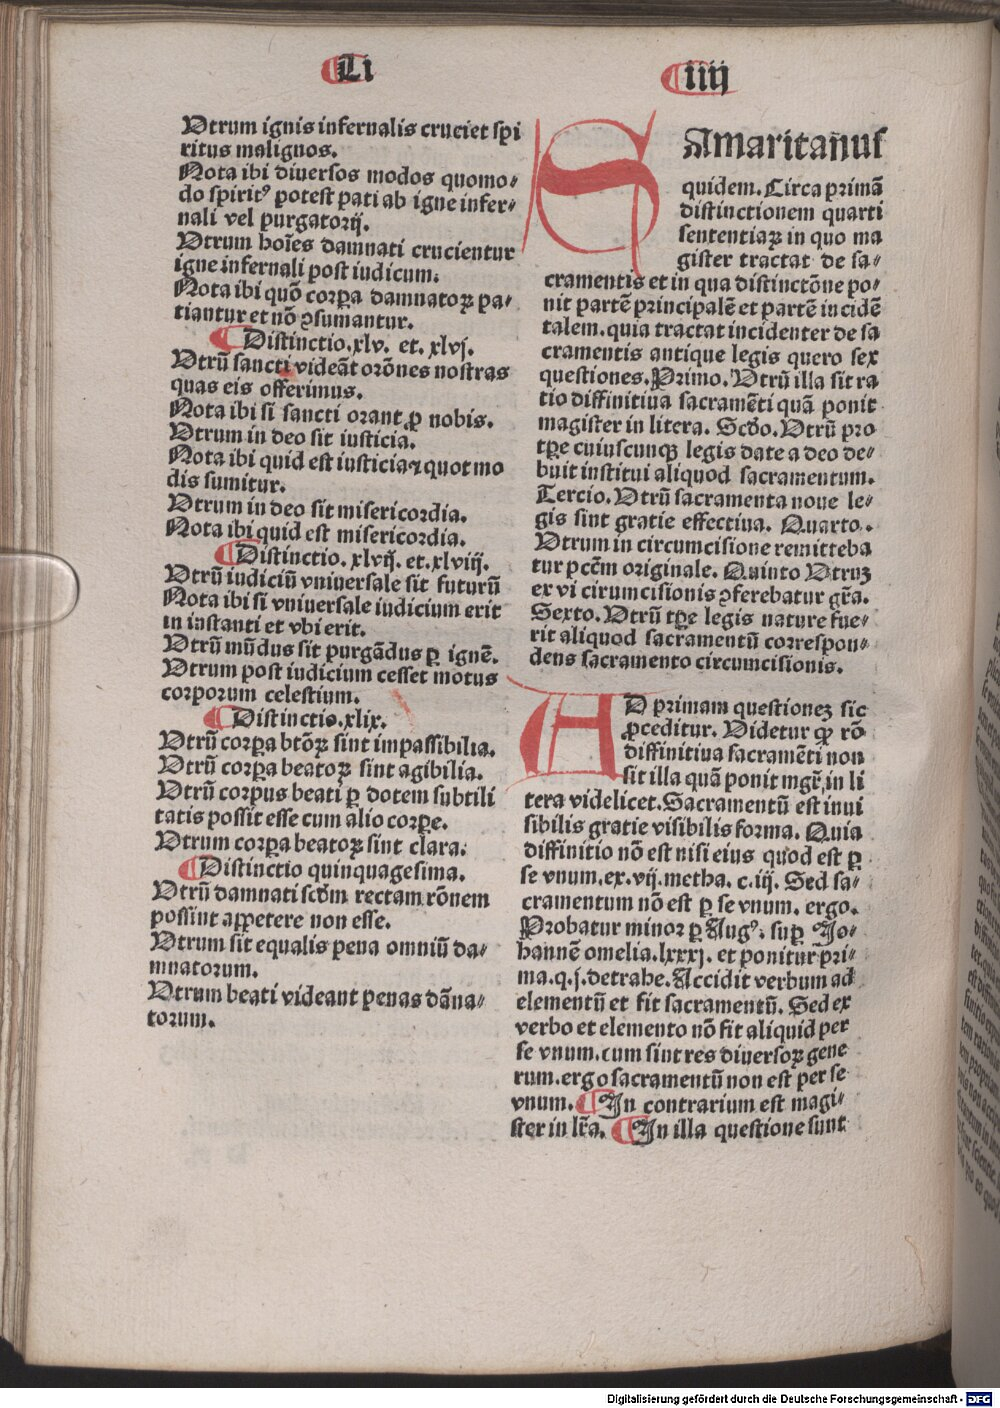 Li
iiij
Vtrum ignis infernalis cruciet spi
ritus malignos.
Nota ibi diuersos modos quomo-
do spiritꝰ potest pati ab igne infer-
nali vel purgatorij.
Vtrum hoīes damnati crucientur
igne infernali post iudicum.
Nota ibi quō corpa damnatoꝝ pa-
tiantur et nō ꝯsumantur.
¶ Distinctio.xlv. et. xlvj.
Vtrū sancti videāt orōnes nostras
quas eis offerimus.
Nota ibi si sancti orant ꝓ nobis.
Vtrum in deo sit iusticia.
Nota ibi quid est iusticia ⁊ quot mo
dis sumitur.
Vtrum in deo sit misericordia.
Nota ibi quid est misericordia.
¶ Distinctio. xlvij. et. xlviij.
Vtrū iudiciū vniuersale sit futurū
Nota ibi si vniuersale iudicium erit
in instanti et vbi erit.
Vtrū mūdus sit purgādus ꝑ ignē.
Vtrum post iudicium cesset motus
corporum celestium.
¶ Distinctio.xlix.
Vtrū corpa btōꝝ sint impassibilia.
Vtrū corpa beatoꝝ sint agibilia.
Vtrū corpus beati ꝑ dotem subtili
tatis possit esse cum alio corpe.
Vtrum corpa beatoꝝ sint clara.
¶ Distinctio quinquagesima.
Vtrū damnati scdm rectam rōnem
possint appetere non esse.
Vtrum sit equalis pena omniū da-
mnatorum.
Vtrum beati videant penas dāna-
torum.
Samaritan̄us
quidem. Circa primā
distinctionem quarti
sententiaꝝ in quo ma
gister tractat de sa-
cramentis et in qua distinctōne po-
nit partē principalē et partē incidē
talem. quia tractat incidenter de sa
cramentis antique legis quero sex
questiones. Primo. Vtrū illa sit ra
tio diffinitiua sacramēti quā ponit
magister in litera. Scdo. Vtrū pro
tpe cuiuscunqꝫ legis date a deo de-
buit institui aliquod sacramentum.
Tercio. Vtrū sacramenta noue le-
gis sint gratie effectiua. Quarto.
Vtrum in circumcisione remitteba
tur pctm̄ originale. Quinto Vtruꝫ
ex vi circumcisionis ꝯferebatur gr̄a.
Sexto. Vtrū tpe legis nature fue-
rit aliquod sacramentū correspon-
dens sacramento circumcisionis.
AD primam questioneꝫ sic
ꝓceditur. Videtur ꝙ rō
diffinitiua sacramēti non
sit illa quā ponit mgr̄ in li
tera videlicet. Sacramentū est inui
sibilis gratie visibilis forma. Quia
diffinitio nō est nisi eius quod est ꝑ
se vnum. ex. vij. metha. c. iij. Sed sa-
cramentum nō est ꝑ se vnum. ergo.
Probatur minor ꝑ Augꝰ. suꝑ Jo-
hannē omelia. lxxxj. et ponitur pri-
ma. q. j. detrahe. Accidit verbum ad
elementū et fit sacramentū. Sed ex
verbo et elemento nō fit aliquid per
se vnum. cum sint res diuersoꝝ gene
rum. ergo sacramentū non est per se
vnum. ¶ In contrarium est magi-
ster in lr̄a. ¶ In illa questione sunt
Digitalisierung gefördert durch die Deutsche Forschungsgemeinschaft - DFG